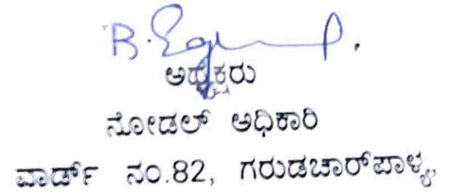 ಅಧ್ಯಕ್ಷರು
ನೋಡಲ್ ಅಧಿಕಾರಿ
ವಾರ್ಡ್ ನಂ.82, ಗರುಡಚಾರ್‌ಪಾಳ್ಯ,